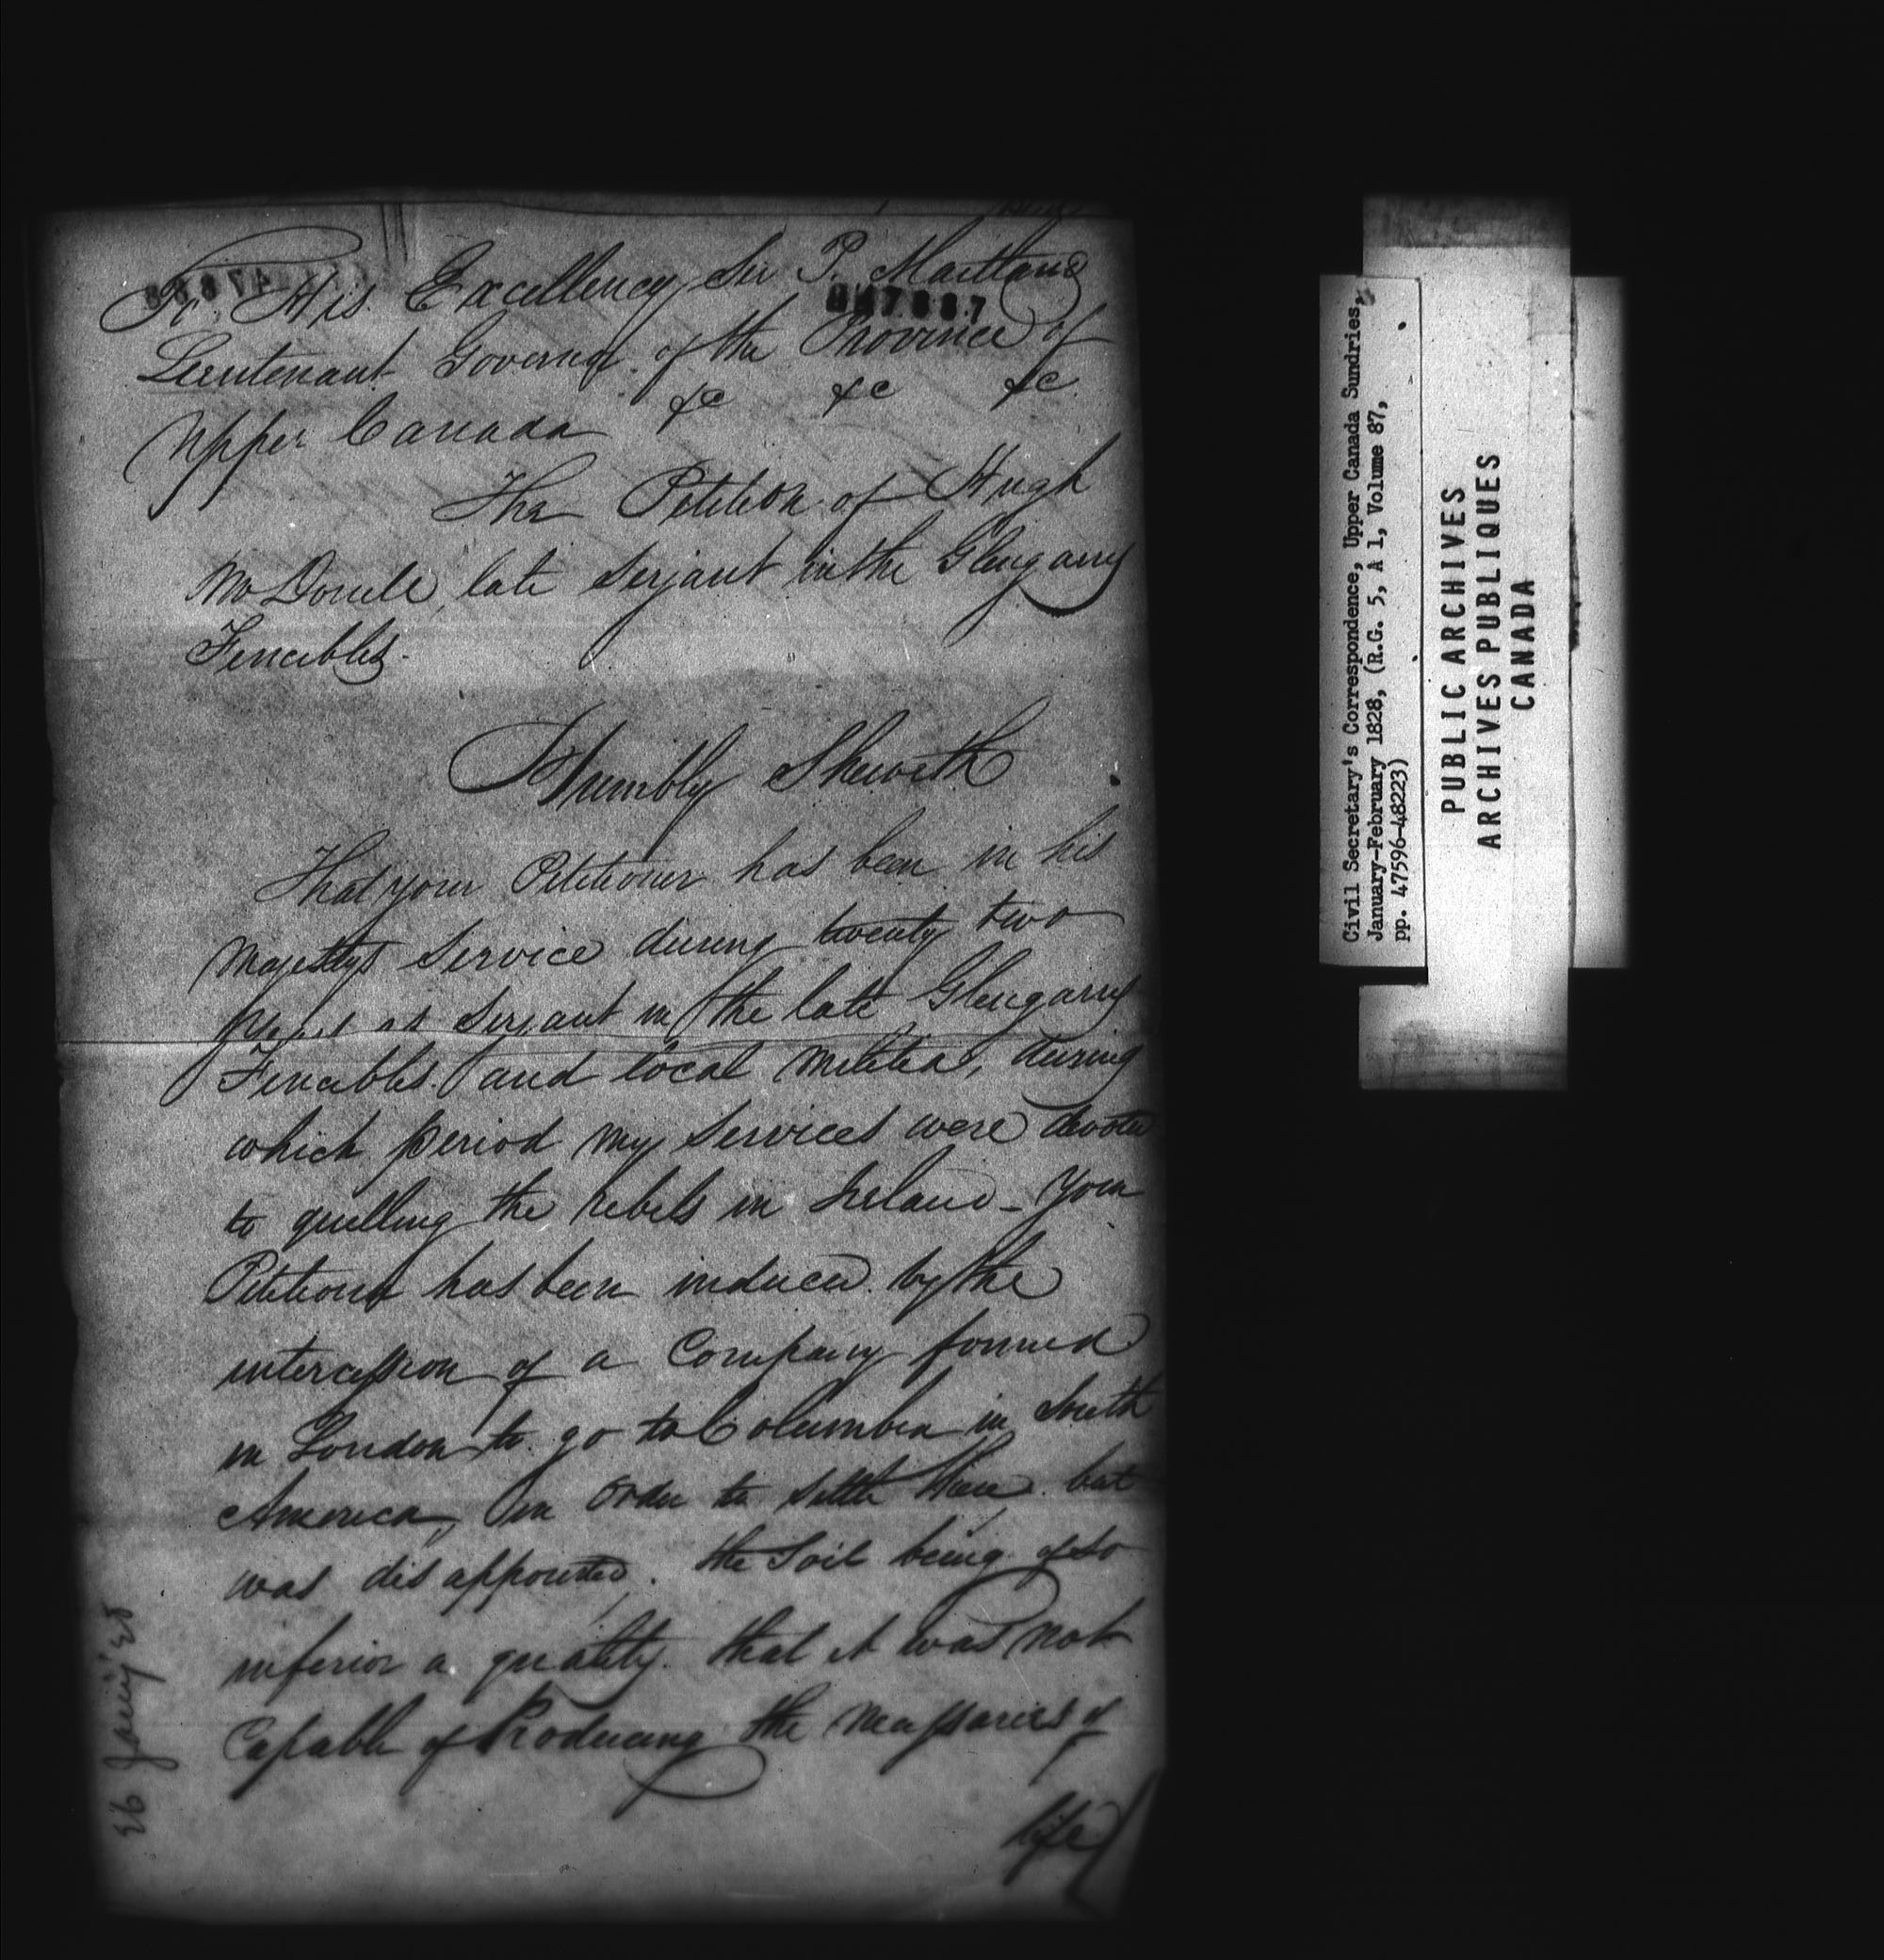 To His Excellency Sir P. Maitland
Lieutenant Governor of the Province of
Upper Canada &c &c &c
The Petition of Hugh
McDonell late Serjant in the Glengarry
Fencibles.
Humbly Sheweth
That your Petitioner has been in his
Majestys Service during twenty two
years as Serjant in the late Glengarry
Fencibles and local Militia, during
which period my Services were devoted
to quelling the rebels in Ireland - Your
Petitioner has been induced by the
intercession of a Company formed
in London to go to Columbia in South
America, in order to settle there but
was disappointed. the Soil being of so
inferior a quality that it was not
Capable of Producing the necessaries of
life
Civil Secretary's Correspondence, Upper Canada Sundries,
January-February 1828, (R.G. 5, A 1, Volume 87,
pp. 47596-48223)
PUBLIC ARCHIVES
ARCHIVES PUBLIQUES
CANADA